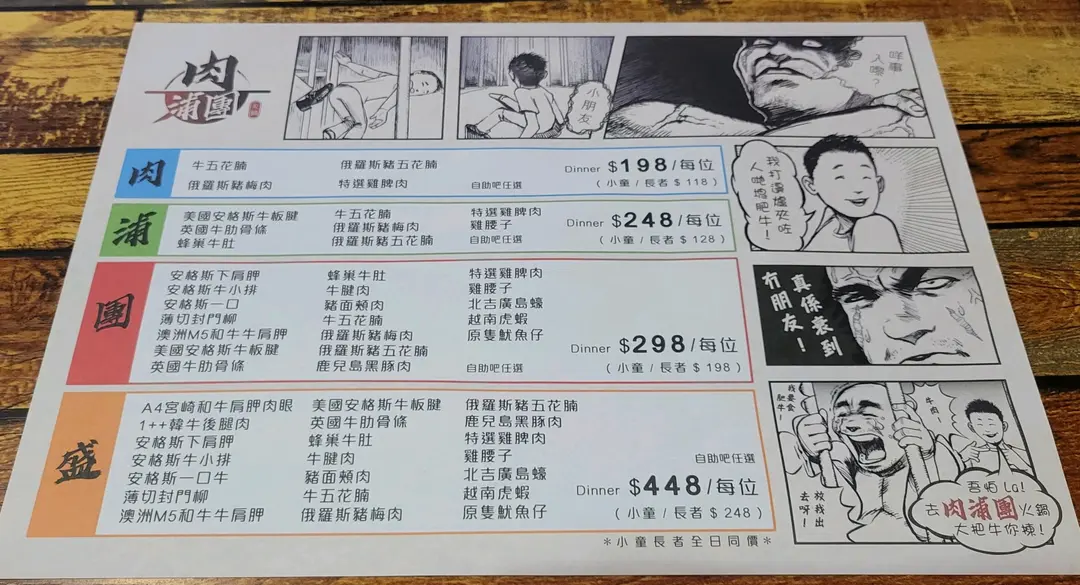 肉
浦團
小朋友
咩事
入嚟?
肉
牛五花腩 俄羅斯豬五花腩 Dinner $198/每位
俄羅斯豬梅肉 特選雞脾肉 自助吧任選 ( 小童 / 長者 $ 118 )
浦
美國安格斯牛板腱 牛五花腩 特選雞脾肉
英國牛肋骨條 俄羅斯豬梅肉 雞腰子 Dinner $248/每位
蜂巢牛肚 俄羅斯豬五花腩 自助吧任選 ( 小童 / 長者 $ 128 )
團
安格斯下肩胛 蜂巢牛肚 特選雞脾肉
安格斯牛小排 牛腱肉 雞腰子
安格斯一口 豬面頰肉 北吉廣島蠔
薄切封門柳 牛五花腩 越南虎蝦
澳洲M5和牛牛肩胛 俄羅斯豬梅肉 原隻魷魚仔
美國安格斯牛板腱 俄羅斯豬五花腩 Dinner $298/每位
英國牛肋骨條 鹿兒島黑豚肉 自助吧任選 ( 小童 / 長者 $ 198 )
盛
A4宮崎和牛肩胛肉眼 美國安格斯牛板腱 俄羅斯豬五花腩
1++韓牛後腿肉 英國牛肋骨條 鹿兒島黑豚肉
安格斯下肩胛 蜂巢牛肚 特選雞脾肉
安格斯牛小排 牛腱肉 雞腰子 自助吧任選
安格斯一口牛 豬面頰肉 北吉廣島蠔
薄切封門柳 牛五花腩 越南虎蝦 Dinner $448/每位
澳洲M5和牛牛肩胛 俄羅斯豬梅肉 原隻魷魚仔 ( 小童 / 長者 $ 248 )
*小童長者全日同價*
我打邊爐夾咗
人哋嚿肥牛!
真係衰到
冇朋友!
我要食
肥牛!
牛肉
放我出
去呀!
吾怕 La!
去肉浦團火鍋
大把牛你揀!